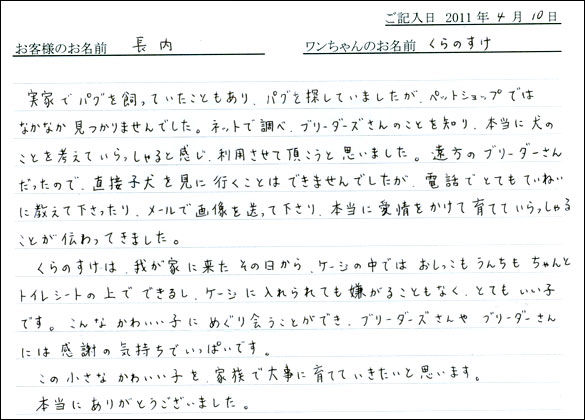 ご記入日 2011年 4月 10日
お客様のお名前 長内 ワンちゃんのお名前 くらのすけ
実家でパグを飼っていたこともあり、パグを探していましたが、ペットショップでは
なかなか見つかりませんでした。ネットで調べ、ブリーダーズさんのことを知り、本当に犬の
ことを考えていらっしゃると感じ、利用させて頂こうと思いました。遠方のブリーダーさん
だったので、直接子犬を見に行くことはできませんでしたが、電話でとてもていねい
に教えて下さったり、メールで画像を送って下さり、本当に愛情をかけて育てていらっしゃる
ことが伝わってきました。
くらのすけは、我が家に来たその日から、ケージの中ではおしっこもうんちもちゃんと
トイレシートの上でできるし、ケージに入れられても嫌がることもなく、とてもいい子
です。こんなかわいい子にめぐり会うことができ、ブリーダーズさんやブリーダーさん
には感謝の気持ちでいっぱいです。
この小さなかわいい子を、家族で大事に育てていきたいと思います。
本当にありがとうございました。